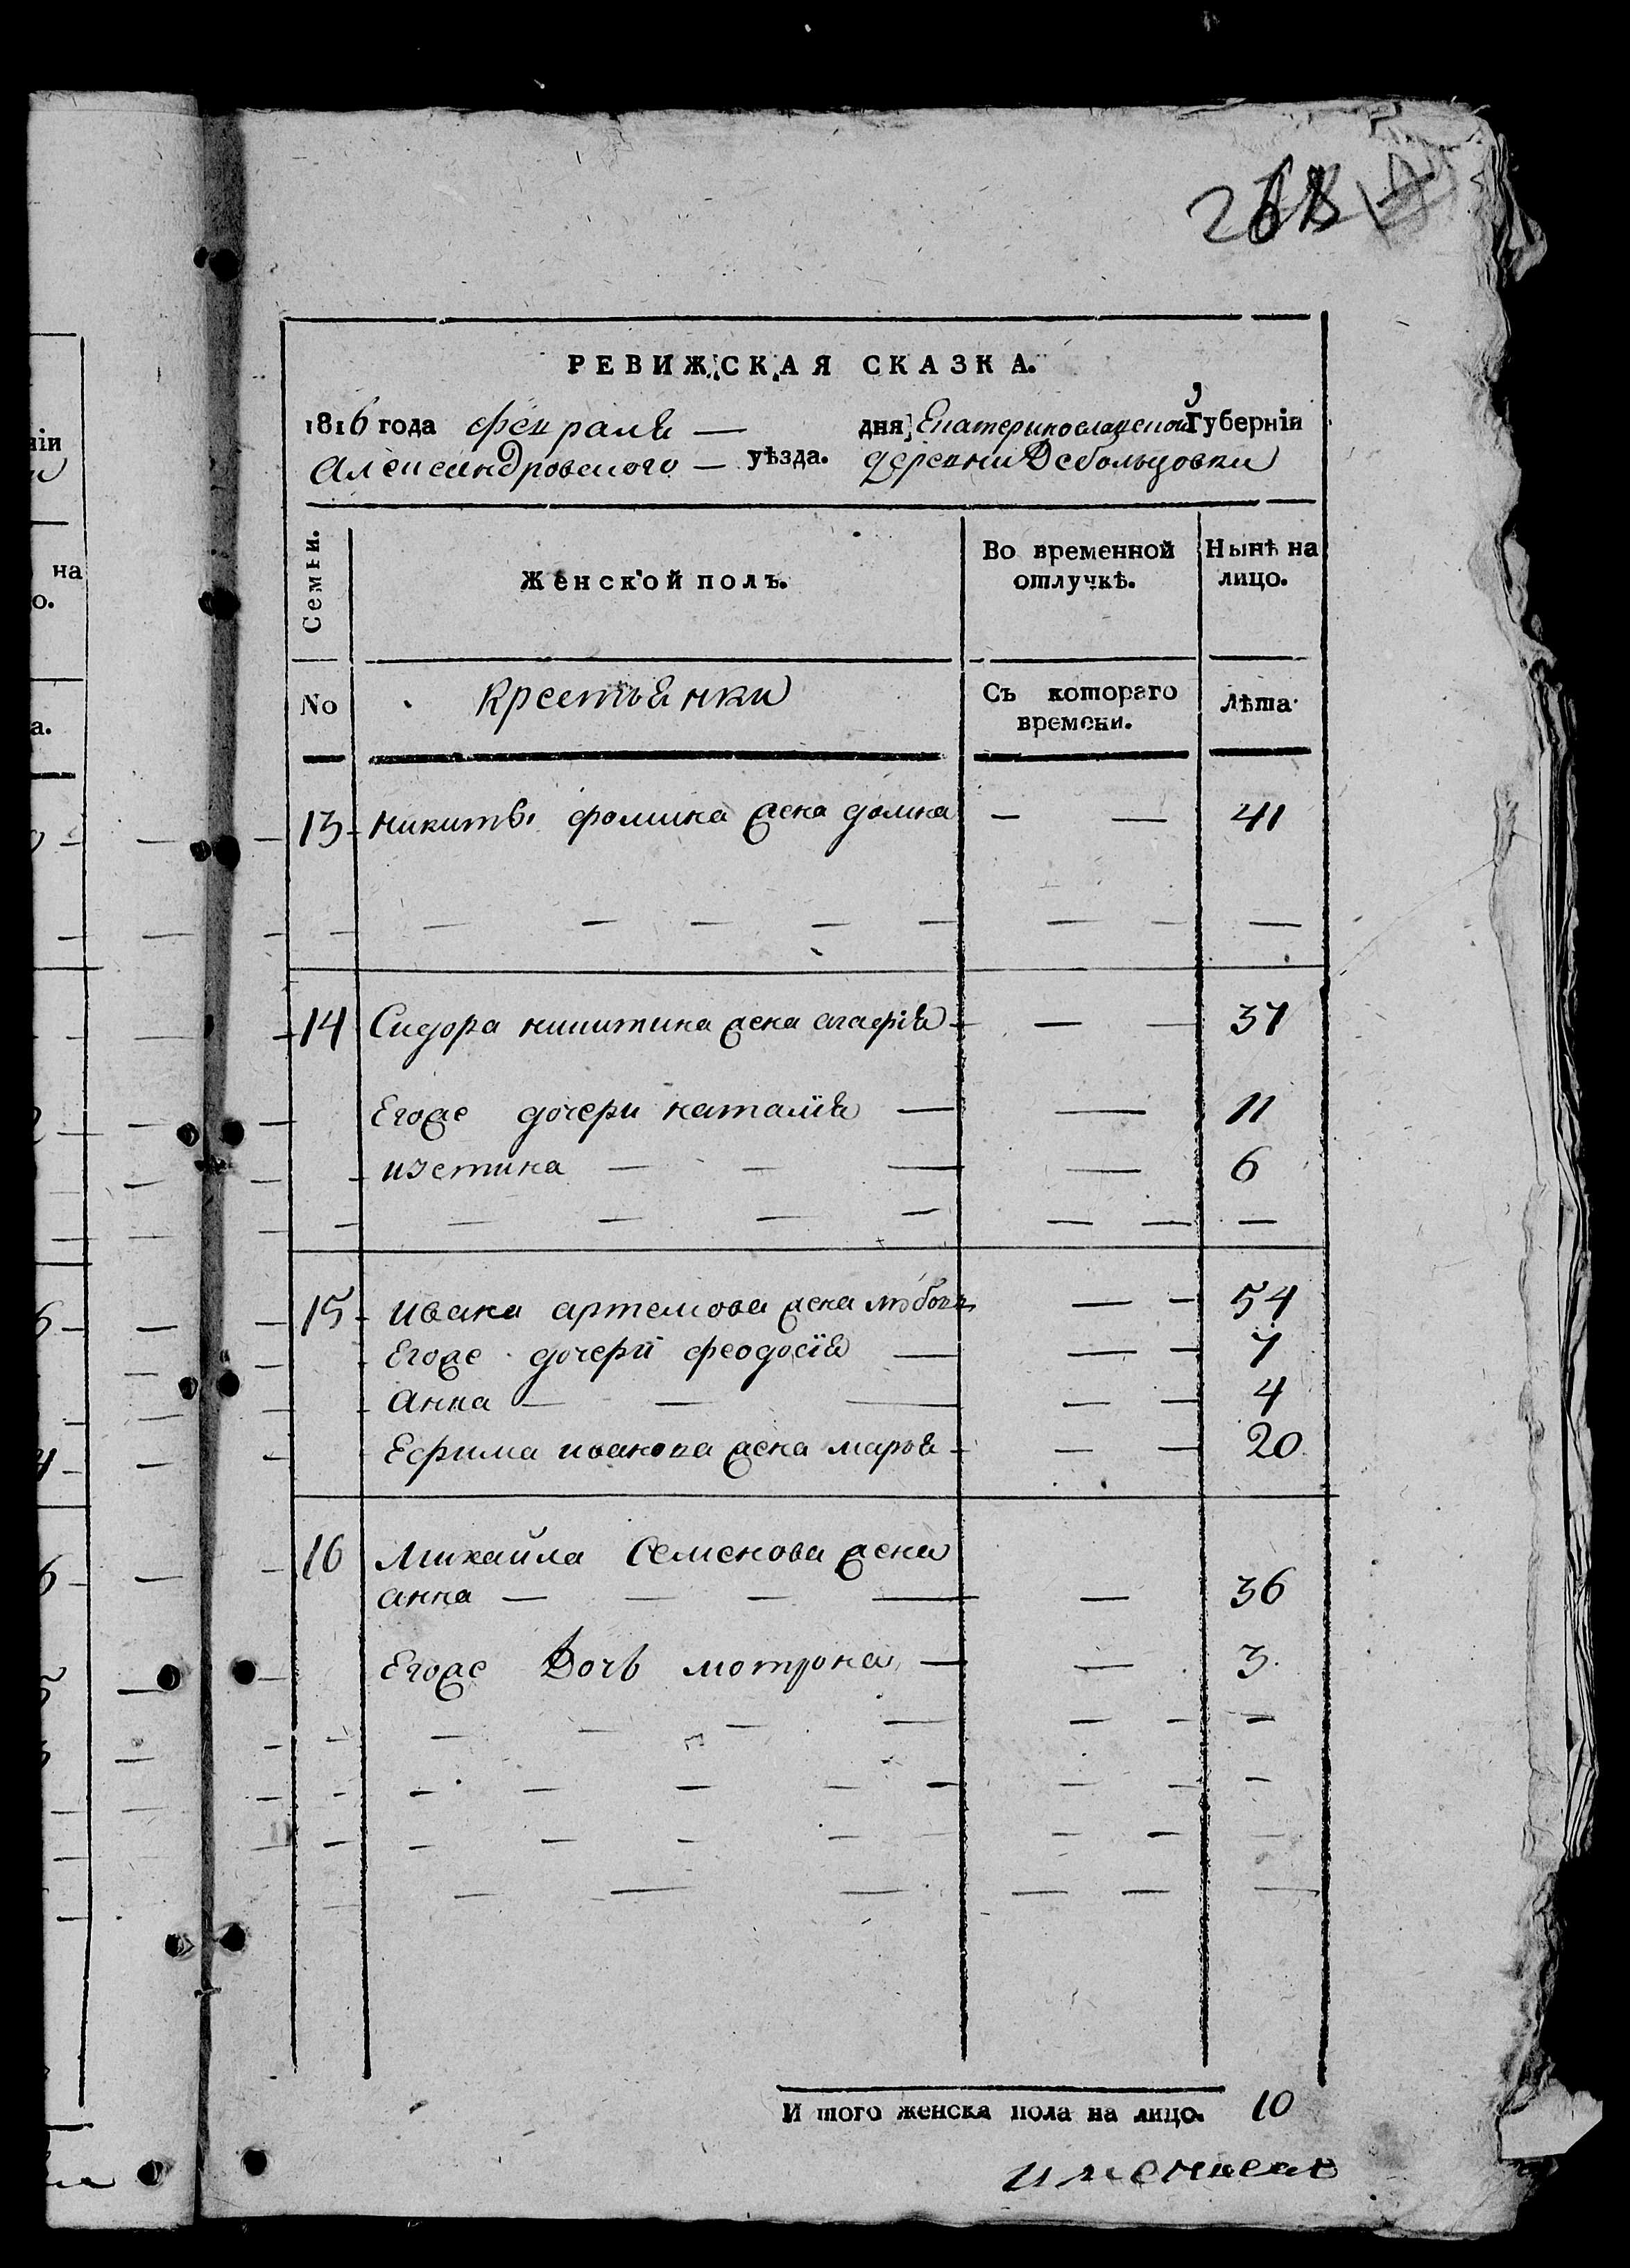 РЕВИЖСКАЯ СКАЗКА.
1816 года февраля — дня Екатеринославской Губерніи
Александровского — уѣзда. деревни Дебольцовки
Семьи.
Женской полъ.
Во временной отлучкѣ.
Нынѣ на лицо.
No
Крестьянки
Съ котораго времени.
Лѣта
13 никиты фомина жена домна — — 41
14 Сидора никитина жена агафія — — 37
Егоже дочери наталія — — 11
устина — — — — 6
15 ивана артемова жена любовь — — 54
Егоже дочери феодосія — — — 7
Анна — — — — — 4
Ефима иванова жена марья — — — 20
16 Михайла Семенова жена
анна — — — — — 36
Егоже Дочь мотрона — — 3
И того женска пола на лицо. 10
ніи
на
о.
а.